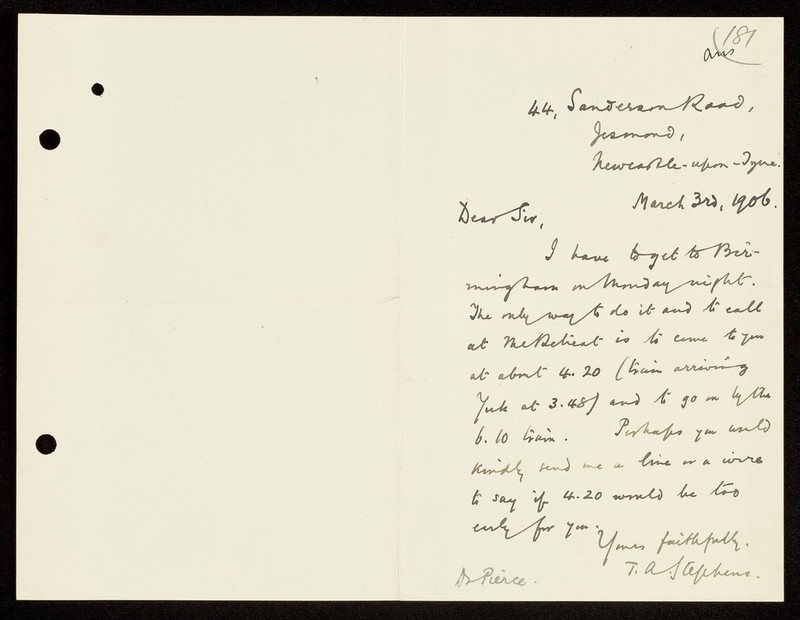 181
ans
44, Sanderson Road,
Jesmond,
Newcastle-upon-Tyne.
March 3rd, 1906.
Dear Sir,
I have to get to Bir-
mingham on Monday night.
The only way to do it and to call
at The Retreat is to come to you
at about 4.20 (train arriving
York at 3.48) and to go on by the
6.10 train. Perhaps you would
kindly send me a line or a wire
to say if 4.20 would be too
early for you.
Yours faithfully.
T. A Stephens.
Dr Pierce.